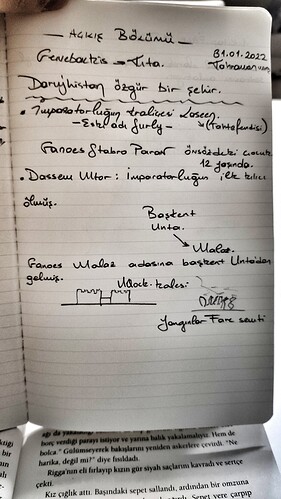 — AÇILIŞ BÖLÜMÜ —
31.01.2022
Genebackis — Tıta.
Darujhistan özgür bir şehir.
• İmparatorluğun kraliçesi Laseen.
- Eski adı Surly -
Ganoes Stabro Paran önsözdeki çocuk.
12 yaşında.
• Dassem Ultor : İmparatorluğun ilk kılıcı
ölmüş.
Başkent
Unta.
Malaz.
Ganoes Malaz adasına başkent Unta'dan
gelmiş.
Mock kalesi
Yangınlar Fare semti
verdiği parayı istiyor ve yarına balık yakalamalıyız. Hem de
bolca." Gülümseyerek bakışlarını yeniden askerlere çevirdi. "Ne
harika, değil mi?" diye fısıldadı.
Rigga'nın eli fırlayıp kızın gür siyah saçlarını kavradı ve sertçe
çekti.
Kız çığlık attı. Başındaki sepet sallandı, ardından bir omzuna